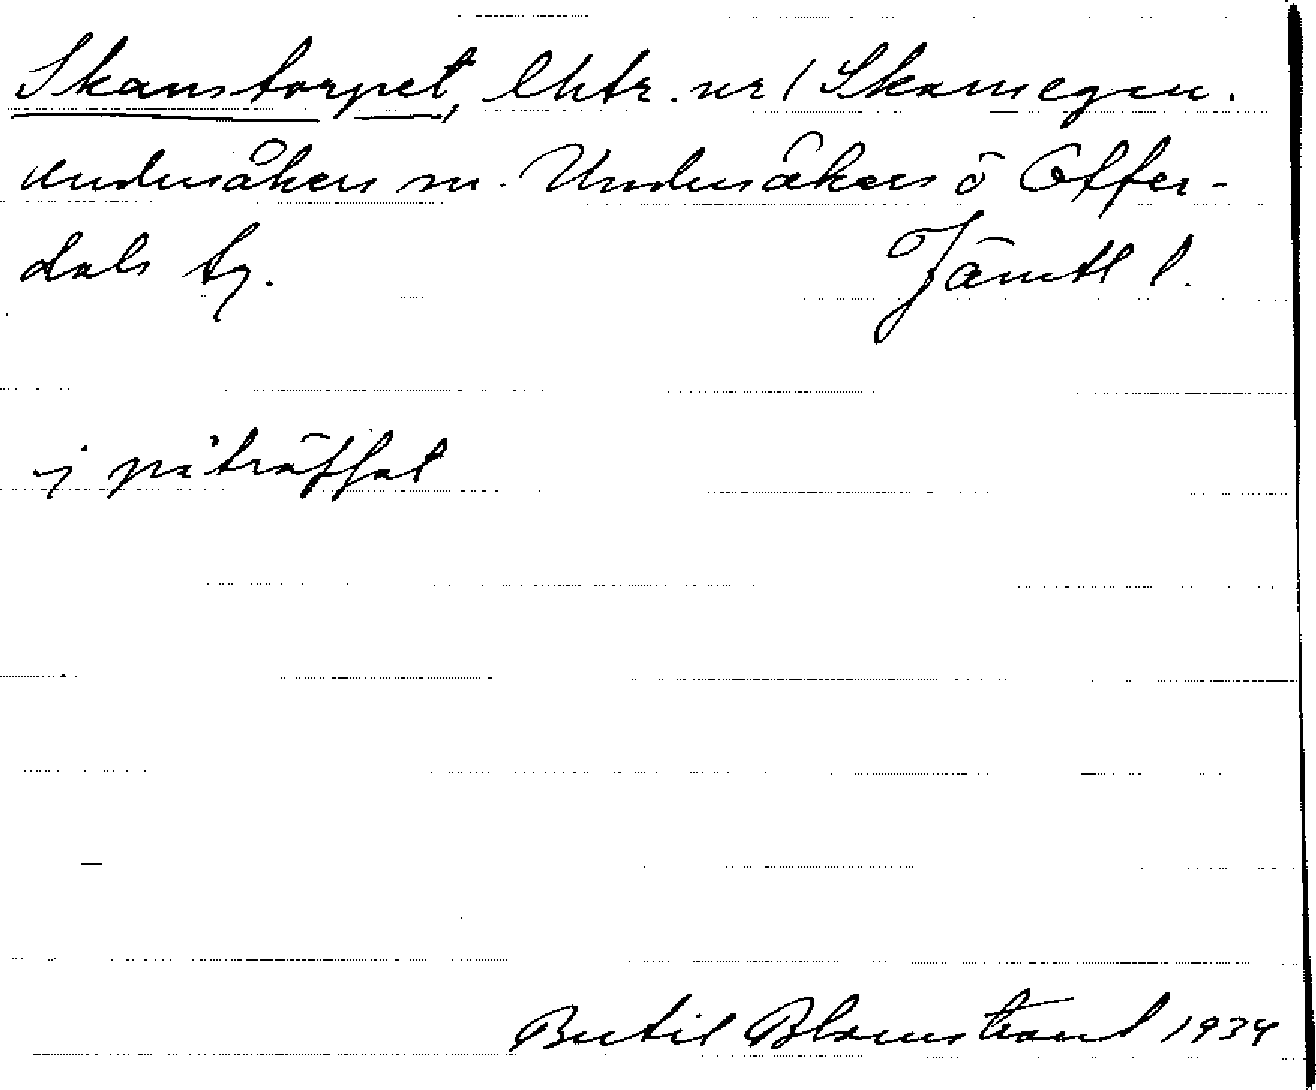 Skanstorpet, lhtr. nr 1 Skansegen.
Undersåkers sn. Undersåkers o Offer-
dals tg. Jämtl l.
ej påträffat
Bertil Blomstrand 1934